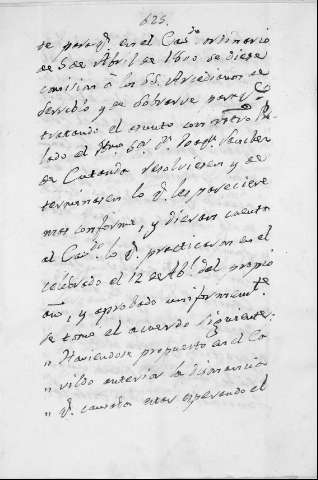 625.
se paraq.e en el Cav.do ordinario
de 3 de Abril de 1800 se diese
comision à los SS. Arcedianos de
y de para q.e
tratando el asunto con nuestro
lado el Ylmo Sor. Dn. Joaqn. Sanchez
de Cutanda resolviesen y de
terminasen lo q.e les pareciere
mas conforme, y diesen cuenta
al Cav.do lo q.e practicaron en el
celebrado el 12 de Ab.l del propio
año, y aprobado uniformem.te
se tomo el acuerdo siguiente:
" Haviendose propuesto en el Ca
" vildo anterior la
" q.e causaba estar esperando el